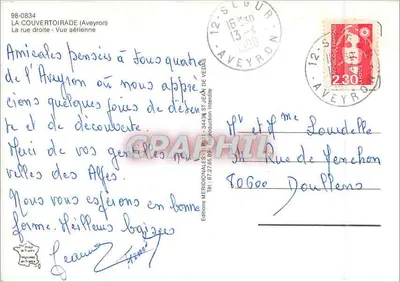 98-0834
LA COUVERTOIRADE (Aveyron)
La rue droite - Vue aérienne
Amicales pensées à tous quatre
de l'Aveyron où nous appré
cions quelques jours de déten
te et de découverte.
Merci de vos gentilles nou
velles des Alpes.
Nous vous espérons en bonne
forme. Meilleurs baisers
Jeanne
12-SEGUR
16H30
AVEYRON
12-SEGUR
AVEYRON
2,30
Mr et Mme Lourdelle
31 Rue de
80600
Doullens
Editions MERIDIONALES
ST JEAN DE VEDAS
Reproduction Interdite
CARTE-GRAPHIL